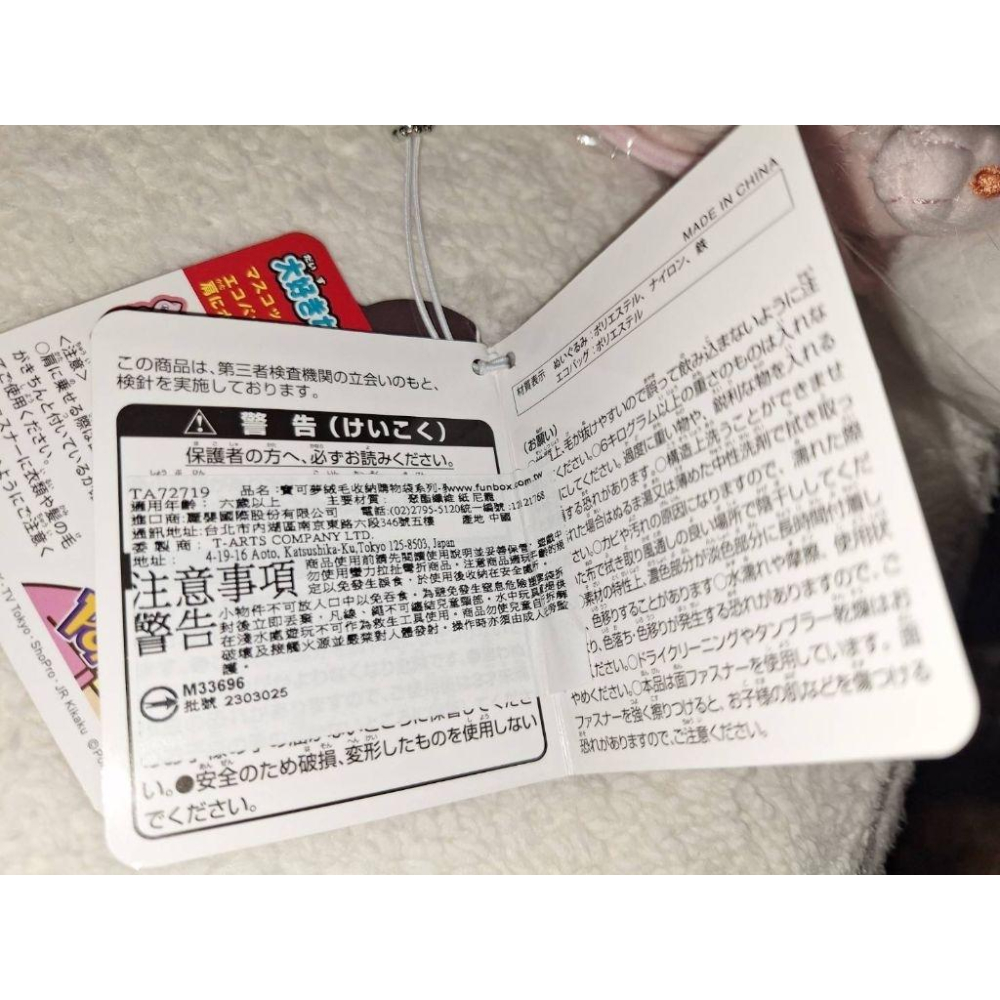 大好きな
マスコッ
エコバ
肩に
<注意>
○肩に乗せる際は
がきちんと付いているか
ご使用ください。
スナーに衣類や髪の毛
ようにご注意く
TV Tokyo・ShoPro・JR Kikaku ©Po
この商品は、第三者検査機関の立会いのもと、
検針を実施しております。
警告(けいこく)
保護者の方へ、必ずお読みください。
TA72719 品名:寶可夢絨毛收納購物袋系列- www.funbox.com.tw
適用年齡:六歲以上 主要材質: 聚酯纖維 紙 尼龍
進口商:麗嬰國際股份有限公司 電話:(02)2795-5120統一編號:12121768
通訊地址:台北市內湖區南京東路六段346號五樓 產地 中國
委製商:T-ARTS COMPANY LTD.
地址: 4-19-16 Aoto, Katsushika-Ku,Tokyo 125-8503, Japan
注意事項
商品使用前請先閱讀使用說明並妥善保管,遊戲中
勿使用蠻力拉扯彎折商品,注意商品適玩年齡的規
定以免發生誤食,於使用後收納在安全處所。
警告
小物件不可放入口中以免吞食,為避免發生窒息危險塑膠袋拆
封後立即丟棄,凡線、繩不可纏結兒童頸部,水中玩具僅提供
在淺水處遊玩不可作為救生工具使用。商品勿使兒童自行拆解
破壞及接觸火源並嚴禁對人體發射,操作時亦須由成人從旁監
護。
M33696
批號 2303025
い。●安全のため破損、変形したものを使用しない
でください。
MADE IN CHINA
材質表示 ぬいぐるみ:ポリエステル、ナイロン、鉄
エコバッグ:ポリエステル
(お願い)
上、毛が抜けやすいので誤って飲み込まないように注
ください。○6キログラム以上の重さのものは入れな
にしてください。過度に重い物や、鋭利な物を入れる
する恐れがあります。○構造上洗うことができませ
れた場合はぬるま湯又は薄めた中性洗剤で拭き取っ
ださい。○カビや汚れの原因になりますので、濡れた際
いた布で拭き取り風通しの良い場所で陰干ししてくだ
素材の特性上、濃色部分が淡色部分に長時間付着し
、色移りすることがあります○水濡れや摩擦、使用状
り、色落ち・色移りが発生する恐れがありますので、ご
ださい。○ドライクリーニングやタンブラー乾燥はお
やめください。○本品は面ファスナーを使用しています。面
ファスナーを強く擦りつけると、お子様の肌などを傷つける
恐れがありますので、ご注意ください。